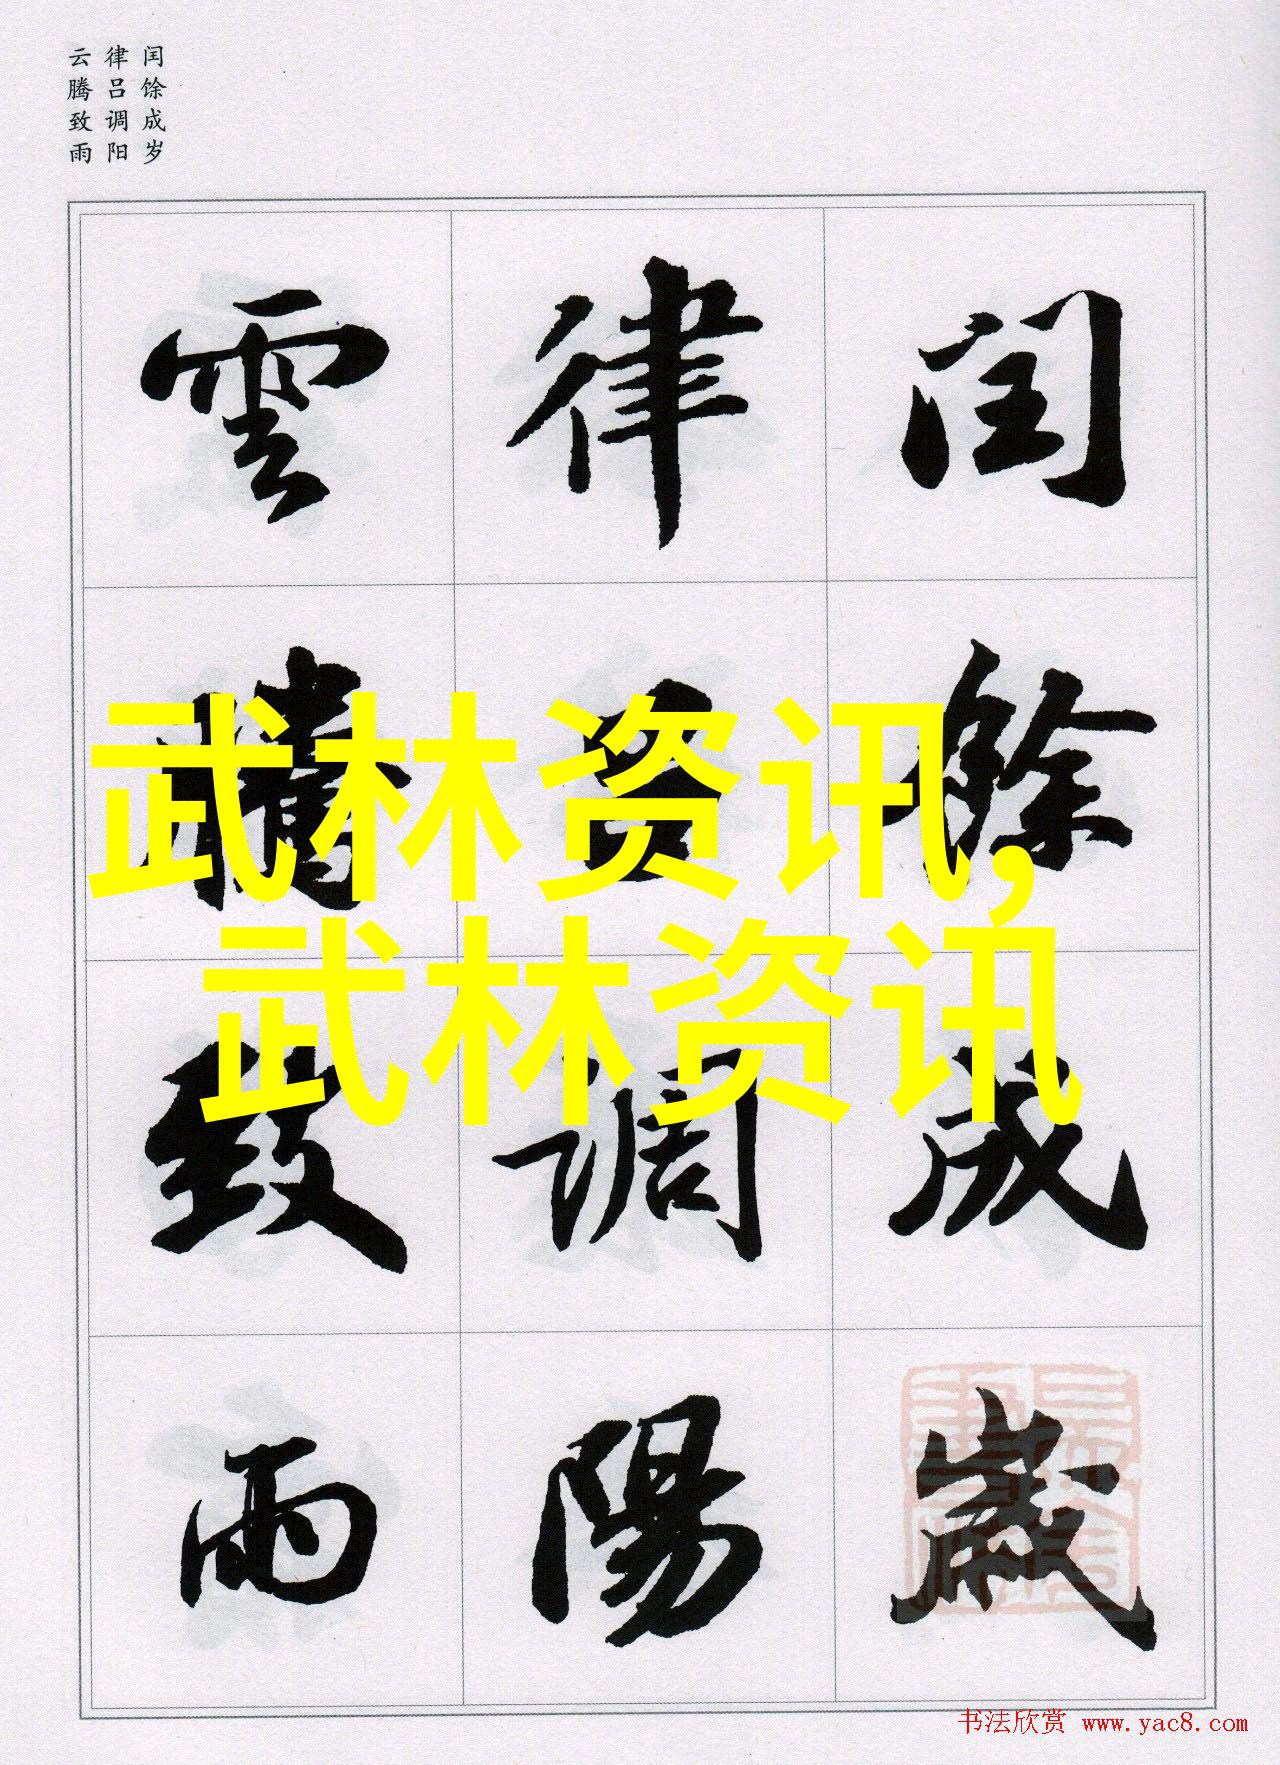 闰馀成岁
律吕调阳
云腾致雨
闰餘成歲
律吕调陽
雲騰致雨
武林资讯,
武林资讯
书法欣赏 www.yac8.com